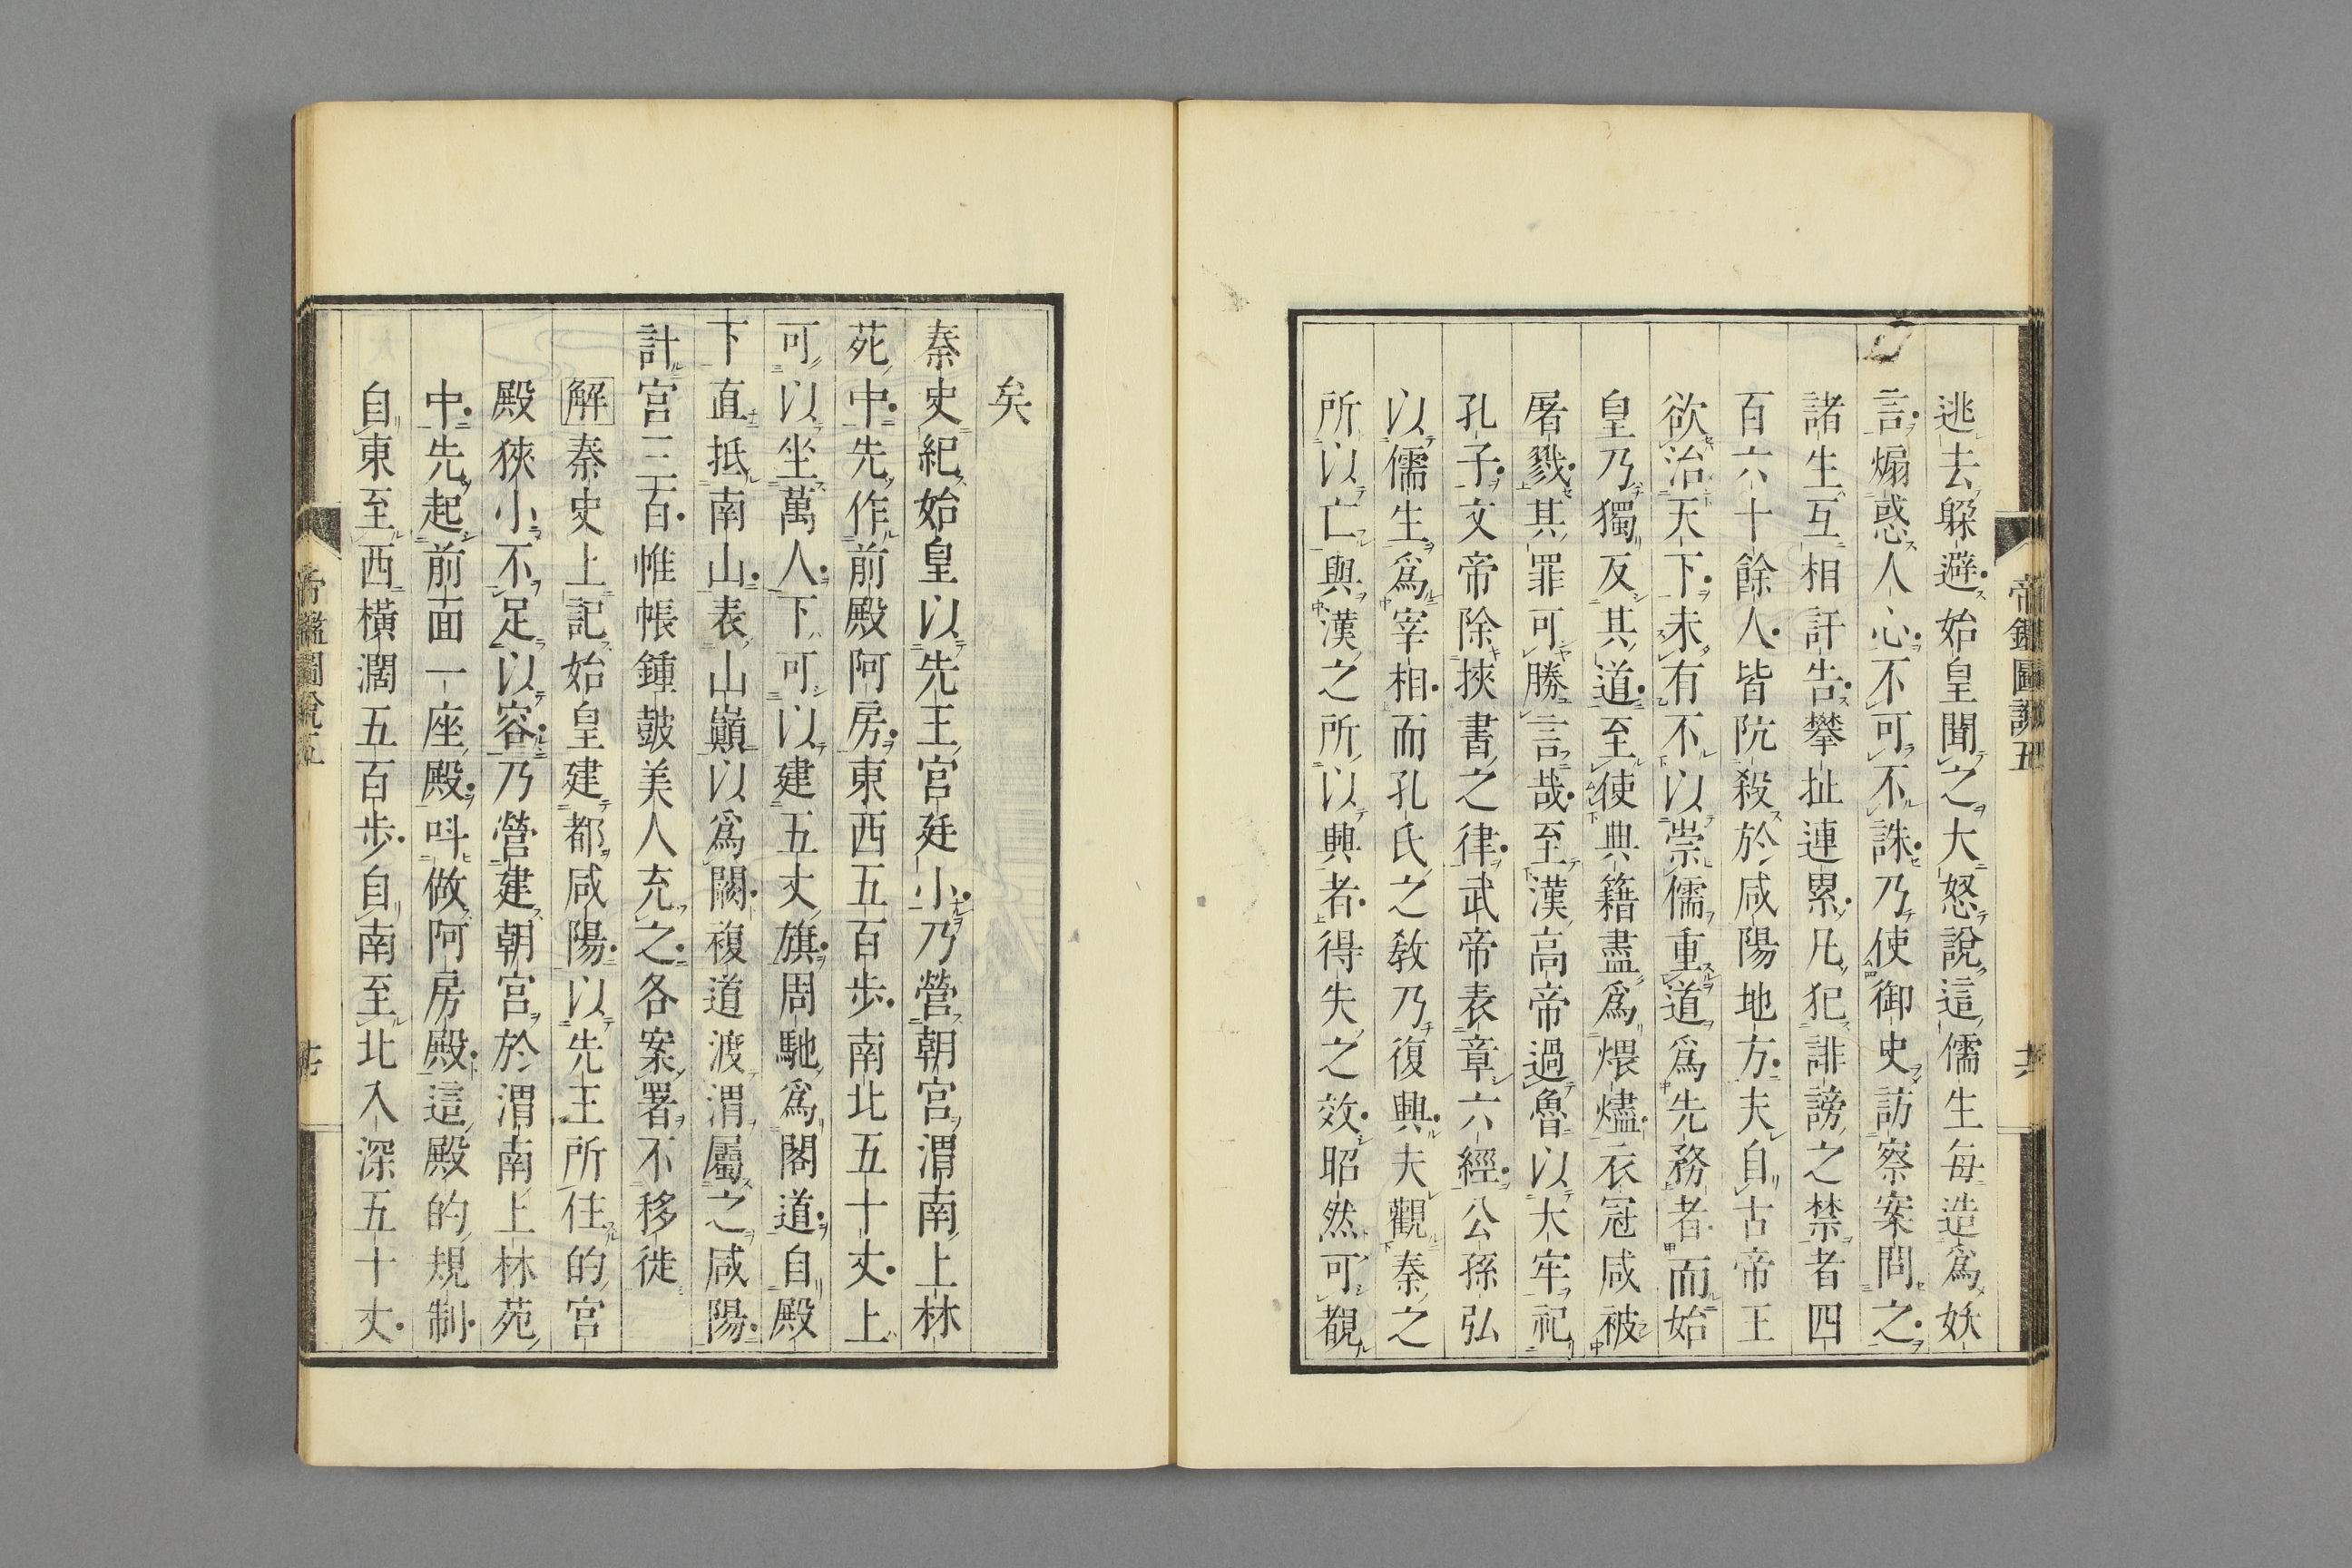 帝鑑圖說五
逃去躱避始皇聞之大怒說這儒生每造爲妖
言煽惑人心不可不誅乃使御史訪察案問之
諸生互相訐告攀扯連累凡犯誹謗之禁者四
百六十餘人皆阬殺於咸陽地方夫自古帝王
欲治天下未有不以崇儒重道爲先務者而始
皇乃獨反其道至使典籍盡爲煨燼衣冠咸被
屠戮其罪可勝言哉至漢高帝過魯以大牢祀
孔子文帝除挾書之律武帝表章六經公孫弘
以儒生爲宰相而孔氏之敎乃復興夫觀秦之
所以亡與漢之所以興者得失之效昭然可覩
矣
秦史紀始皇以先王宮廷小乃營朝宮渭南上林
苑中先作前殿阿房東西五百步南北五十丈上
可以坐萬人下可以建五丈旗周馳爲閣道自殿
下直抵南山表山巓以爲闕複道渡渭屬之咸陽
計宮三百帷帳鍾鼓美人充之各案署不移徙
解秦史上記始皇建都咸陽以先王所住的宮
殿狹小不足以容乃營建朝宮於渭南上林苑
中先起前面一座殿呌做阿房殿這殿的規制
自東至西橫濶五百步自南至北入深五十丈
帝鑑圖說五